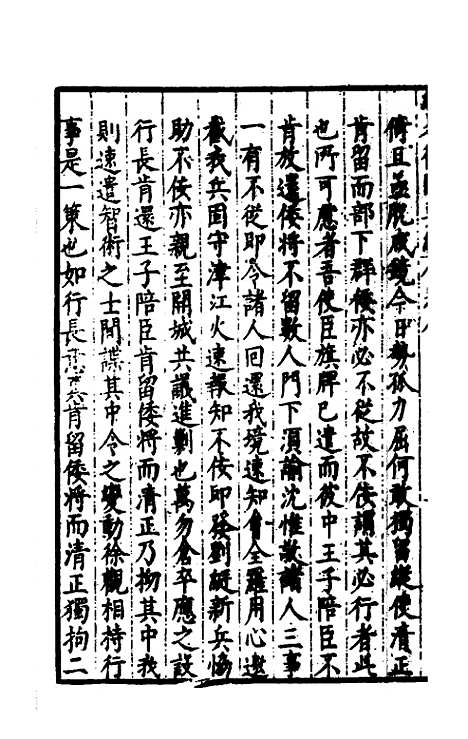 備且並脫咸鏡今日勢孤力屈何敢獨留縱使清正
肯留而部下群倭亦必不從故不佞謂其必行者此
也所可應者吾使臣旗牌已遣而彼中王子陪臣不
肯放還倭將不留數人門下須諭沈惟敬諸人三事
一有不從即令諸人回還我境速知會全羅用心邀
截我兵固守津江火速報知不佞即發劉綎新兵協
助不佞亦親至開城共議進剿也萬勿倉卒應之設
行長肯還王子陪臣肯留倭將而清正乃拗其中我
則速遣智術之士間諜其中令之變動徐觀相持行
事是一策也如行長悉肯留倭將而清正獨拘二